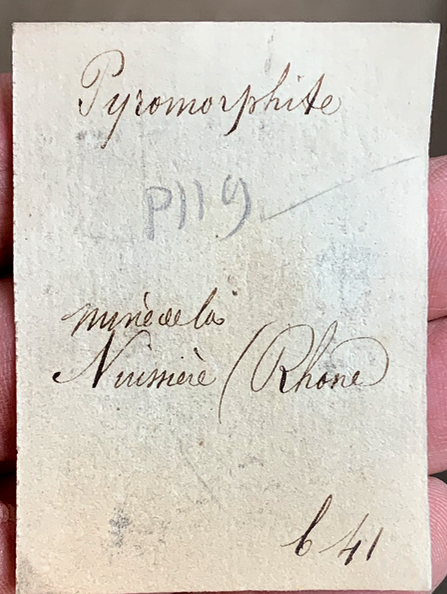 Pyromorphite
P119
mine de la
Nuissière (Rhone)
b 41